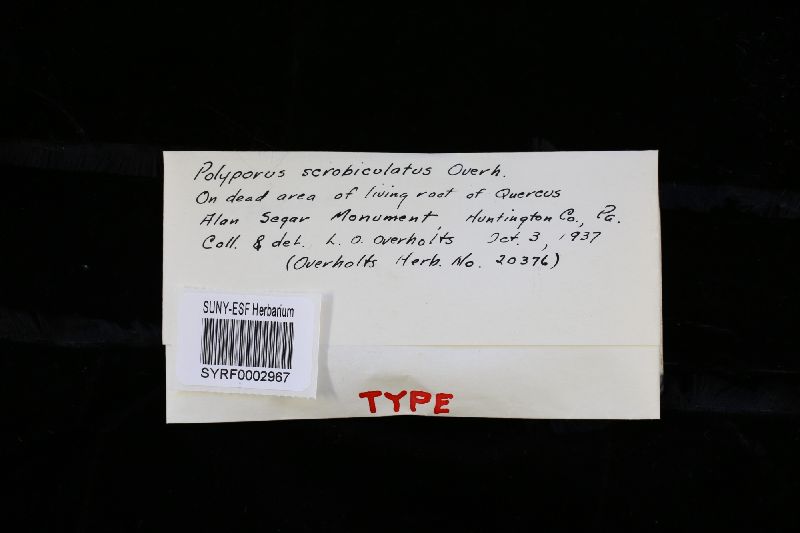 Polyporus scrobiculatus Overh.
On dead area of living root of Quercus
Alan Segar Monument, Huntington Co., Pa.
Coll. & det. L. O. Overholts Oct. 3, 1937
(Overholts Herb. No. 20376)
SUNY-ESF Herbarium
SYRF0002967
TYPE